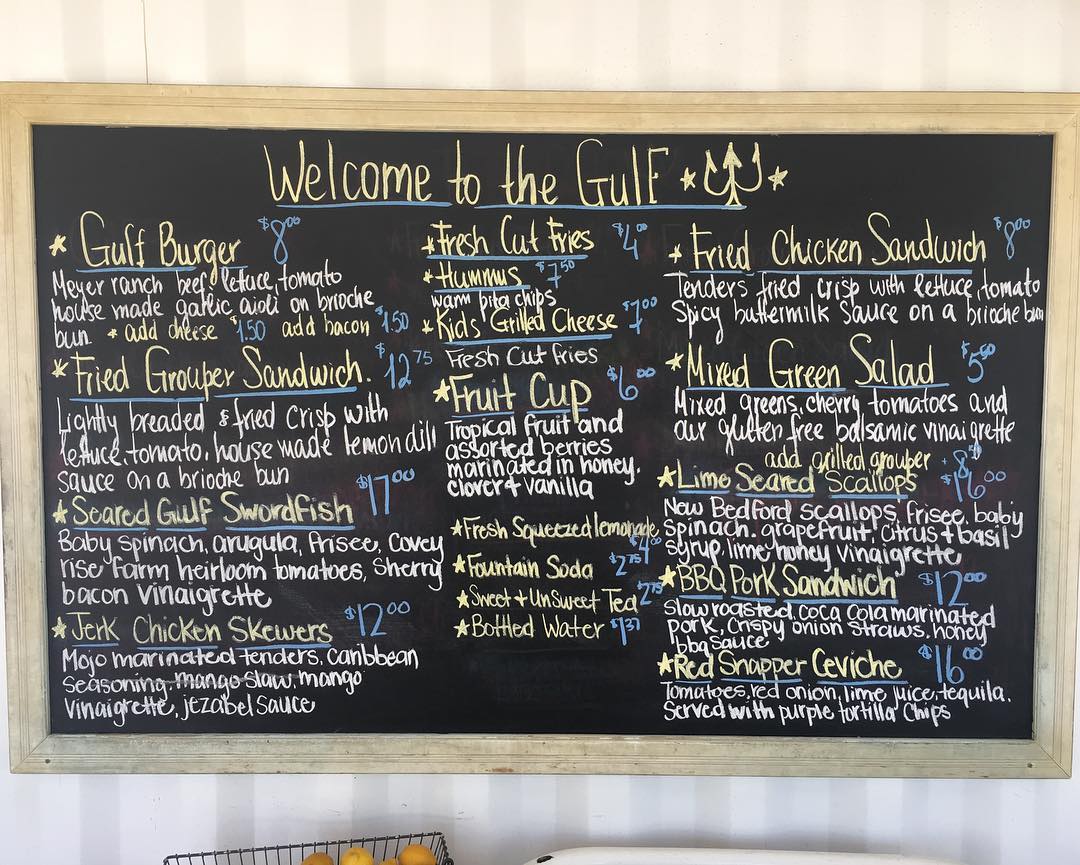 Welcome to the Gulf
* Gulf Burger $8.00
Meyer ranch beef, lettuce, tomato
house made garlic aioli on brioche
bun * add cheese $1.50 add bacon $1.50
* Fried Grouper Sandwich. $12.75
Lightly breaded & fried crisp with
lettuce, tomato, house made lemon dill
sauce on a brioche bun
* Seared Gulf Swordfish $17.00
Baby spinach, arugula, frisee, Covey
rise farm heirloom tomatoes, sherry
bacon vinaigrette
* Jerk Chicken Skewers $12.00
Mojo marinated tenders, Caribbean
seasoning, mango slaw, mango
vinaigrette, jezabel sauce
* Fresh Cut Fries $4.00
* Hummus $7.50
warm pita chips
* Kids Grilled Cheese $7.00
Fresh Cut fries
* Fruit Cup $6.00
Tropical fruit and
assorted berries
marinated in honey,
clover + vanilla
* Fresh Squeezed lemonade, $4.00
* Fountain Soda $2.75
* Sweet + UnSweet Tea $2.75
* Bottled Water $1.37
* Fried Chicken Sandwich $8.00
Tenders fried crisp with lettuce, tomato
Spicy buttermilk sauce on a brioche bun
* Mixed Green Salad $5.00
Mixed greens, cherry tomatoes and
our gluten free balsamic vinaigrette
add grilled grouper +8
* Lime Seared Scallops $16.00
New Bedford scallops, frisee, baby
spinach, grapefruit, citrus + basil
syrup, lime-honey vinaigrette
* BBQ Pork Sandwich $12.00
Slow roasted, coca cola marinated
pork, crispy onion straws, honey
bbq sauce
* Red Snapper Ceviche $16.00
Tomatoes, red onion, lime juice, tequila.
Served with purple tortilla chips